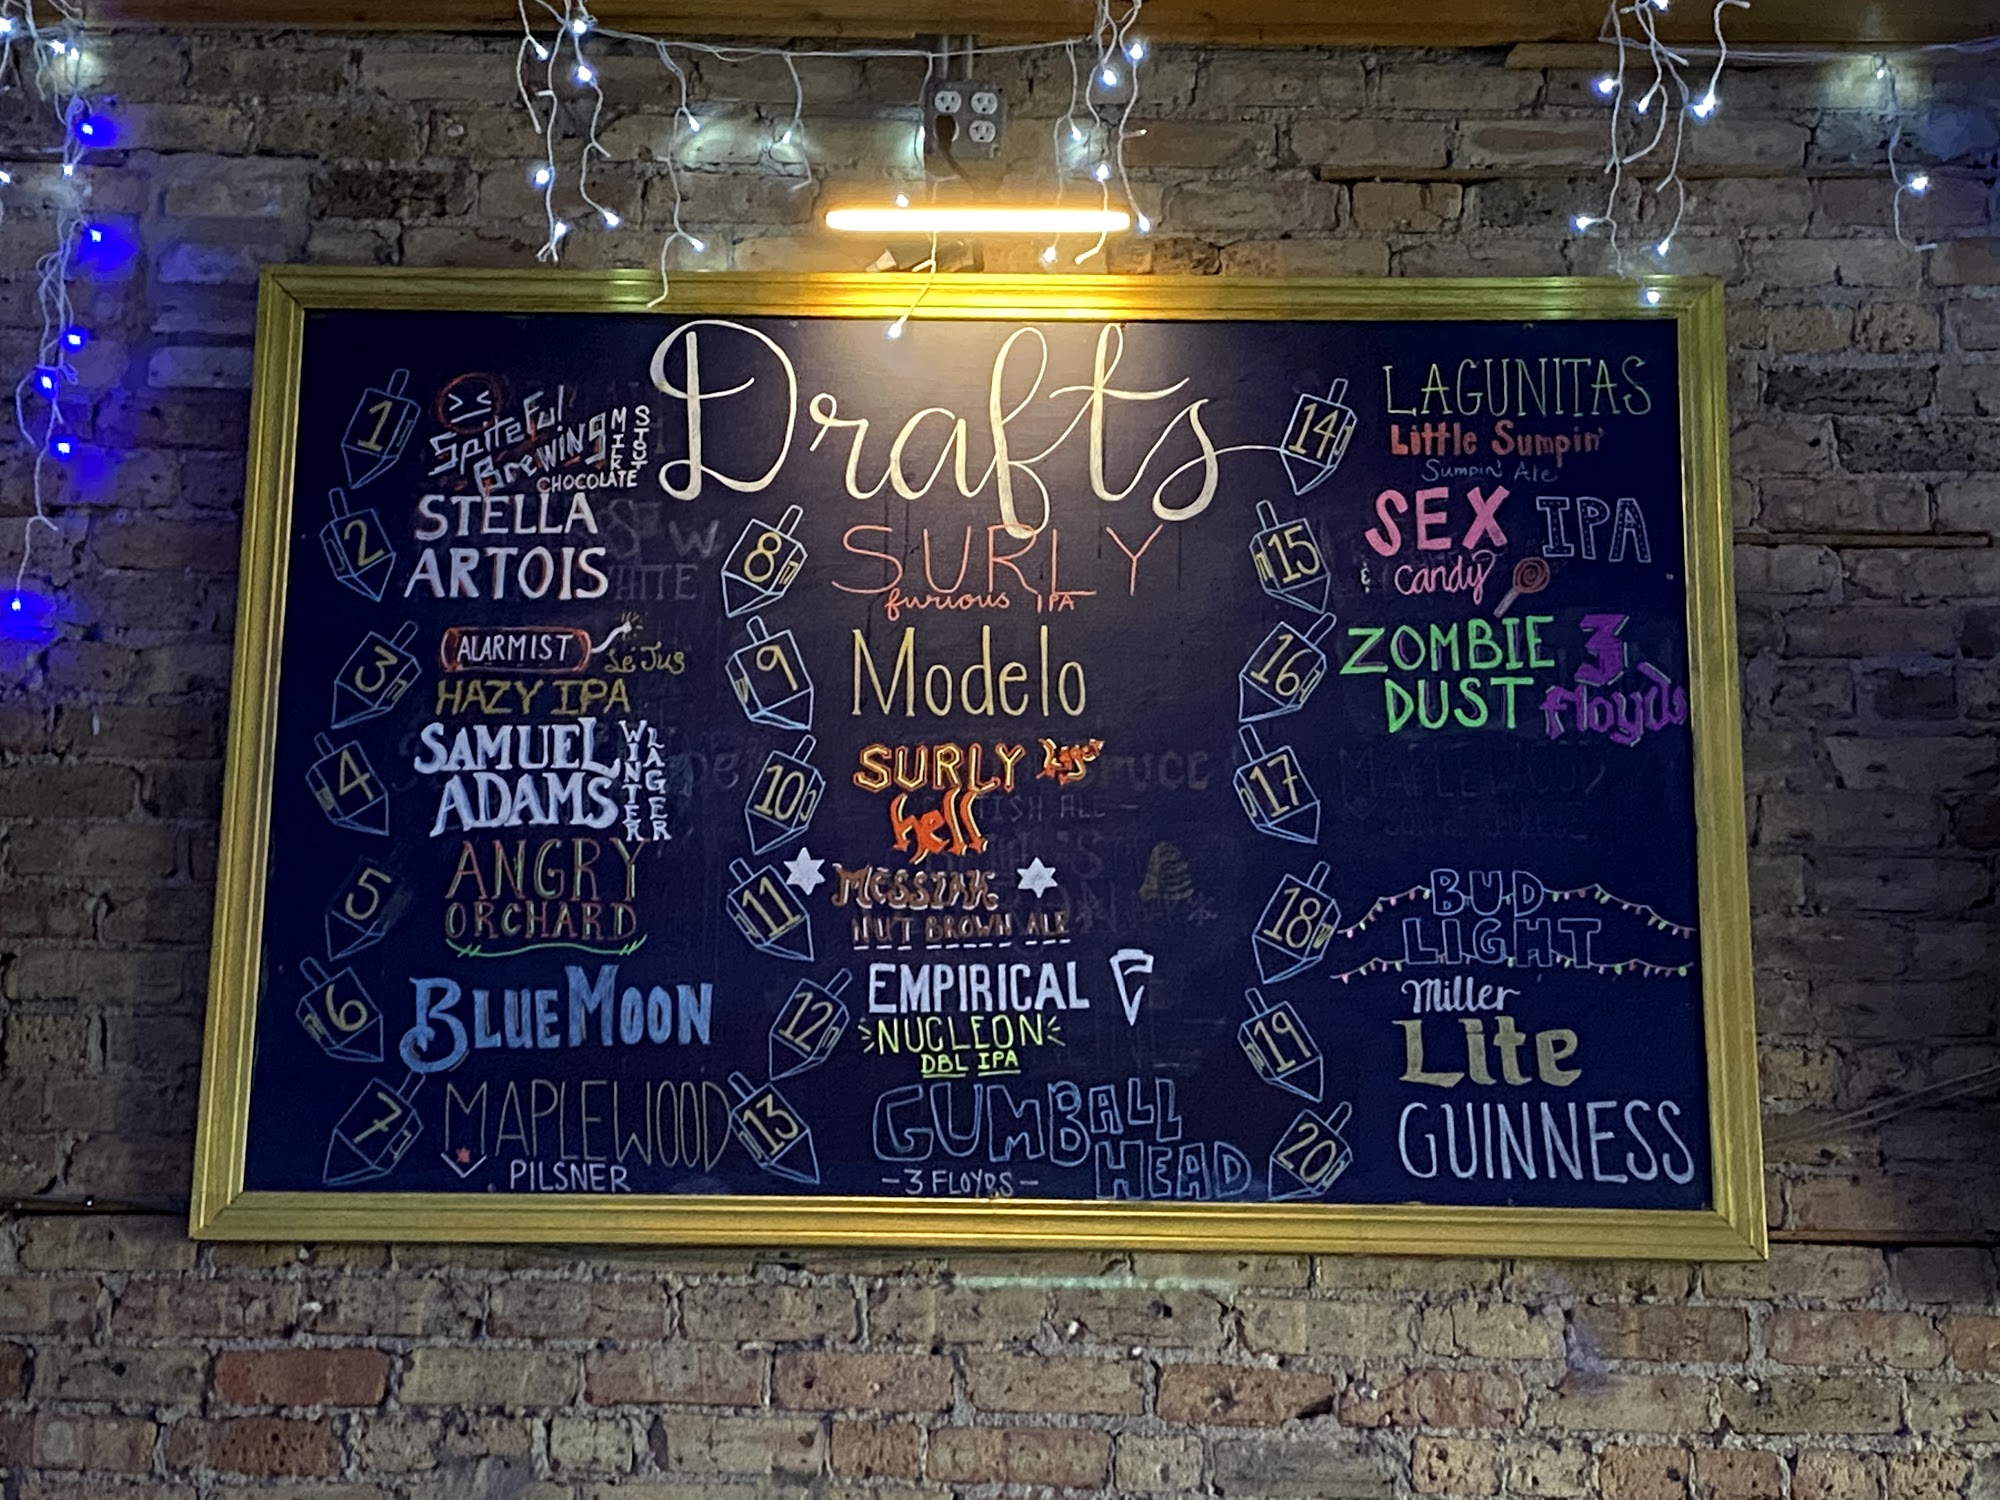 Drafts
1
Spiteful
Brewing
MIER
STST
CHOCOLATE
2
STELLA
ARTOIS
3
ALARMIST
Le Jus
HAZY IPA
4
SAMUEL
ADAMS
WINTER
LAGER
5
ANGRY
ORCHARD
6
BLUE MOON
7
MAPLEWOOD
PILSNER
8
SURLY
furious IPA
9
Modelo
10
SURLY
hell
11
MESSIAH
NUT BROWN ALE
12
EMPIRICAL
NUCLEON
DBL IPA
13
GUMBALL
HEAD
-3 FLOYDS-
14
LAGUNITAS
Little Sumpin'
Sumpin' Ale
15
SEX IPA
& candy
16
ZOMBIE 3
DUST Floyds
17
MAPLEWOOD
18
BUD
LIGHT
19
Miller
Lite
20
GUINNESS